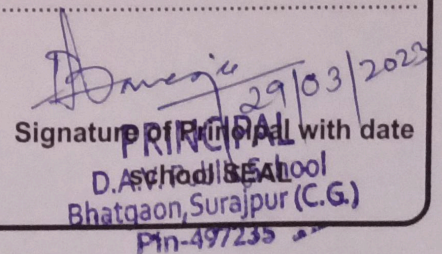 29/03/2023
Signature of Principal with date
PRINCIPAL
school SEAL
D.A.V. Public School
Bhatgaon, Surajpur (C.G.)
Pin-497235